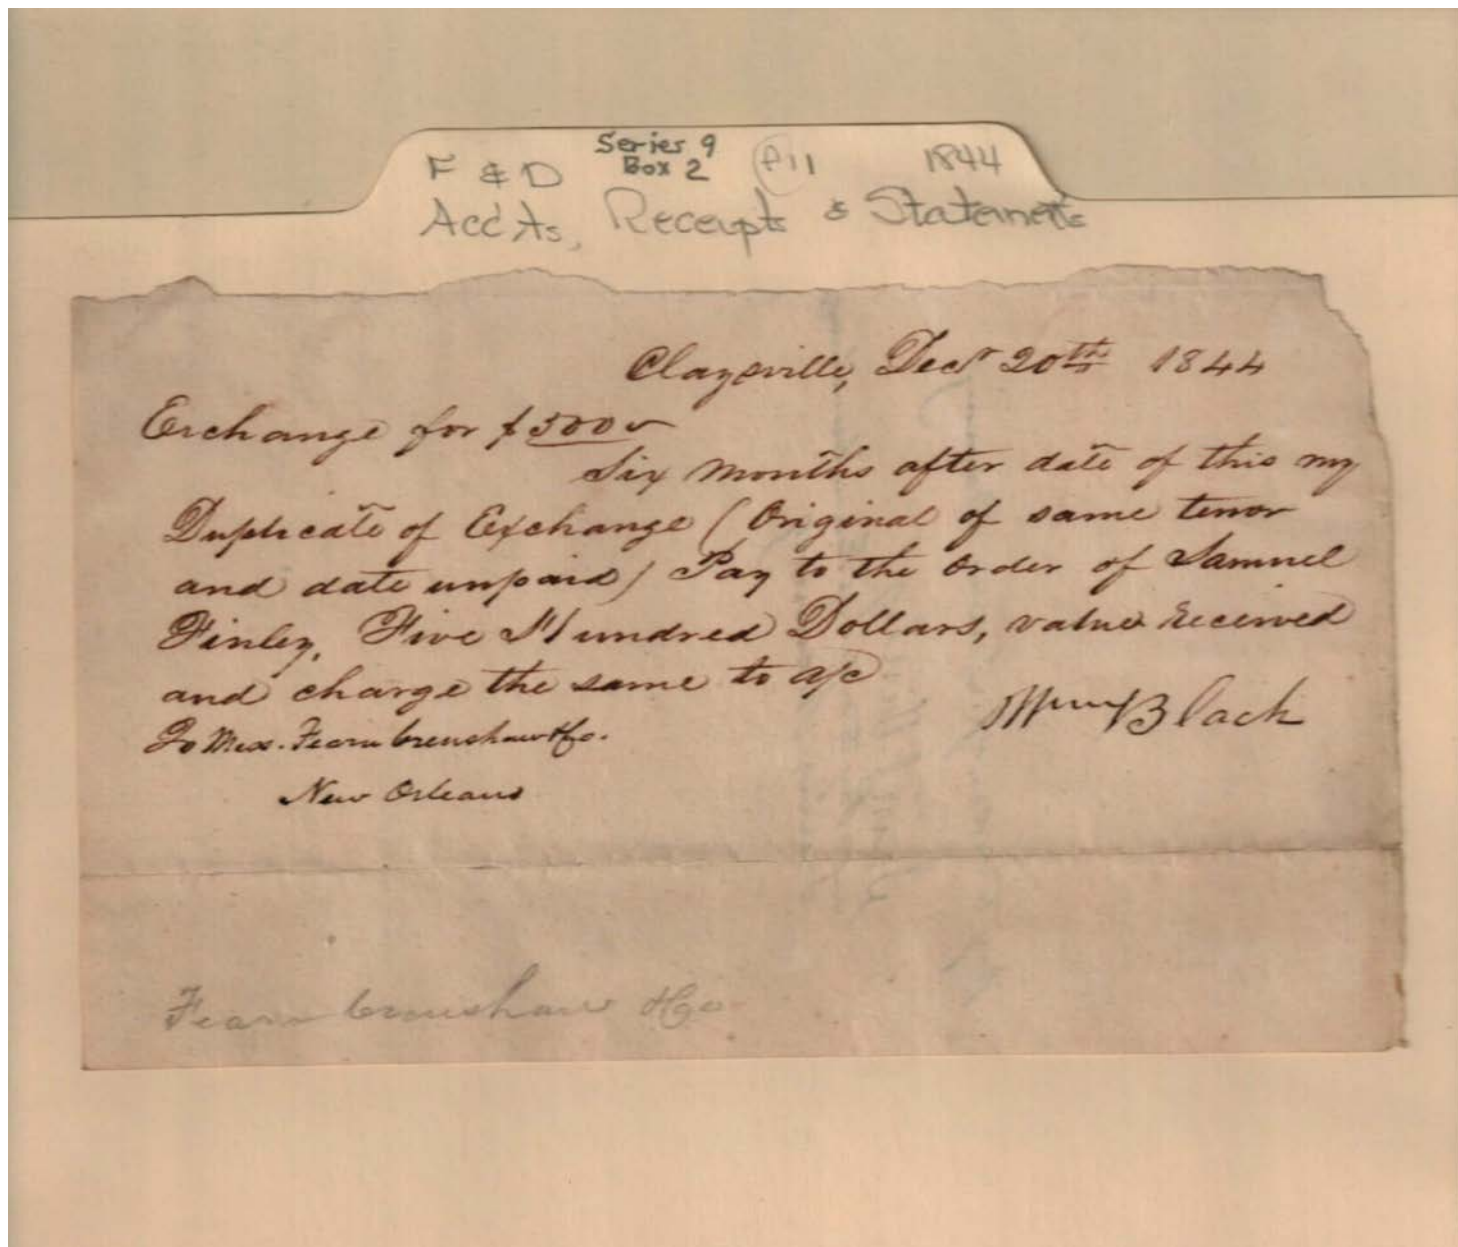 Series 9
F & D Box 2 f11 1844
Acc'ts, Receipts & Statements
Claysville, Decr 20th 1844
Exchange for $500
Six months after date of this my
Duplicate of Exchange (Original of same tenor
and date unpaid) Pay to the order of Samuel
Finley, Five Hundred Dollars, value received
and charge the same to a/c
Wm Black
To Mess. Fearn Crenshaw & Co.
New Orleans
Fearn Crenshaw & Co